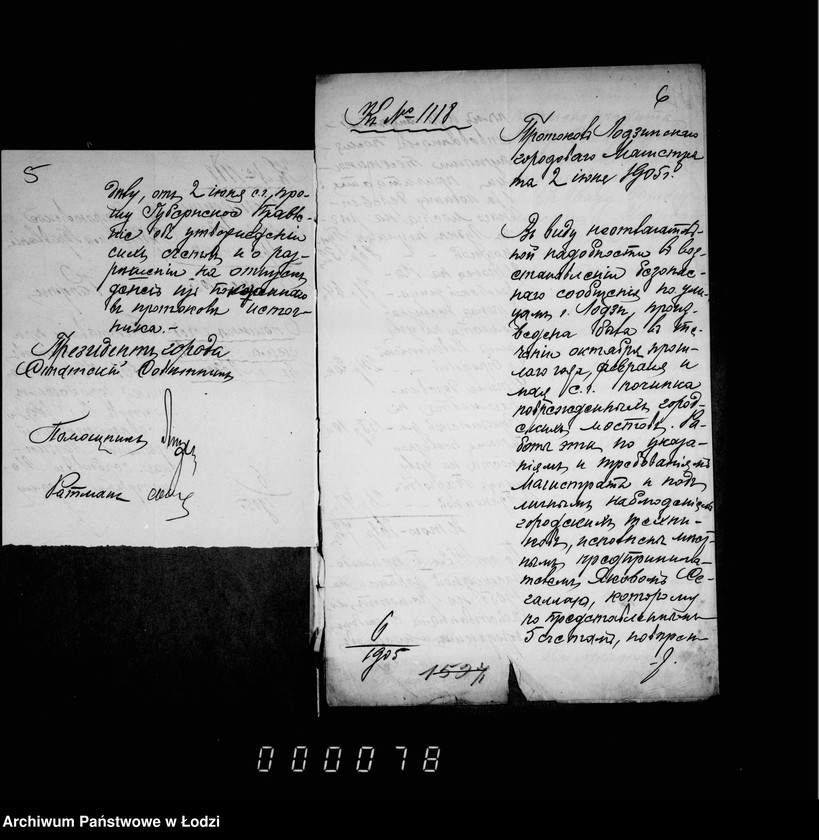 5
дву, отъ 2 іюня с.г., про-
шу Губернское Правле-
ніе объ утвержденіи
симъ счетъ и о раз-
рѣшеніи на отпускъ
денегъ изъ
въ протоколѣ источ-
ника.-
Президентъ города
Статскій Совѣтникъ
Помощникъ
Ратманъ
6
Къ № 1118
Протоколъ Лодзинскаго
городоваго Магистра
та 2 іюня 1905 г.
Въ виду неотлагатель-
ной надобности въ воз-
становленіи безопас-
наго сообщенія по ули-
цамъ г. Лодзи, произ-
ведена была въ те-
ченіи октября прош-
лаго года, февраля и
мая с.г. починка
поврежденныхъ город-
скихъ мостовъ. Ра-
боты эти по указа-
ніямъ и требованіямъ
магистрата и подъ
личнымъ наблюденіемъ
городскихъ техни-
ковъ, исполнены мѣст-
нымъ предпринима-
телемъ Яковомъ Се-
галомъ, которому
по представленнымъ
5 счетамъ, повѣрен-
6
1905
1527
000078
Archiwum Państwowe w Łodzi